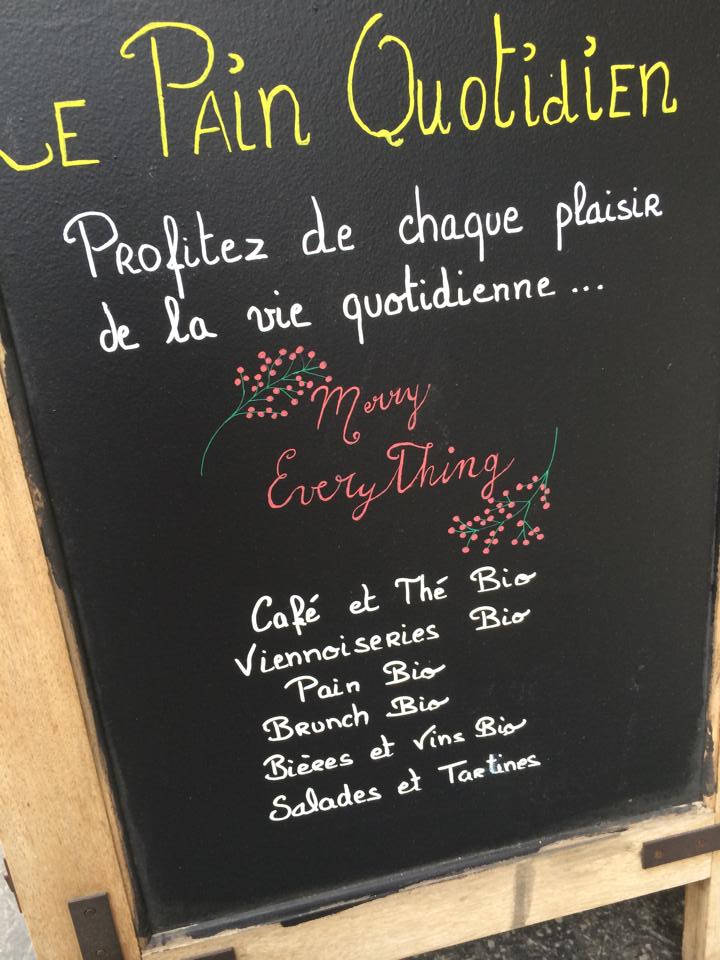 LE PAin QuotidiEn
PRofitez de chaque plaisiR
de la vie quotidienne...
Merry
EveryThing
Café et Thé Bio
ViennoiseRies Bio
Pain Bio
BRunch Bio
Bières et Vins Bio
Salades et TaRtines